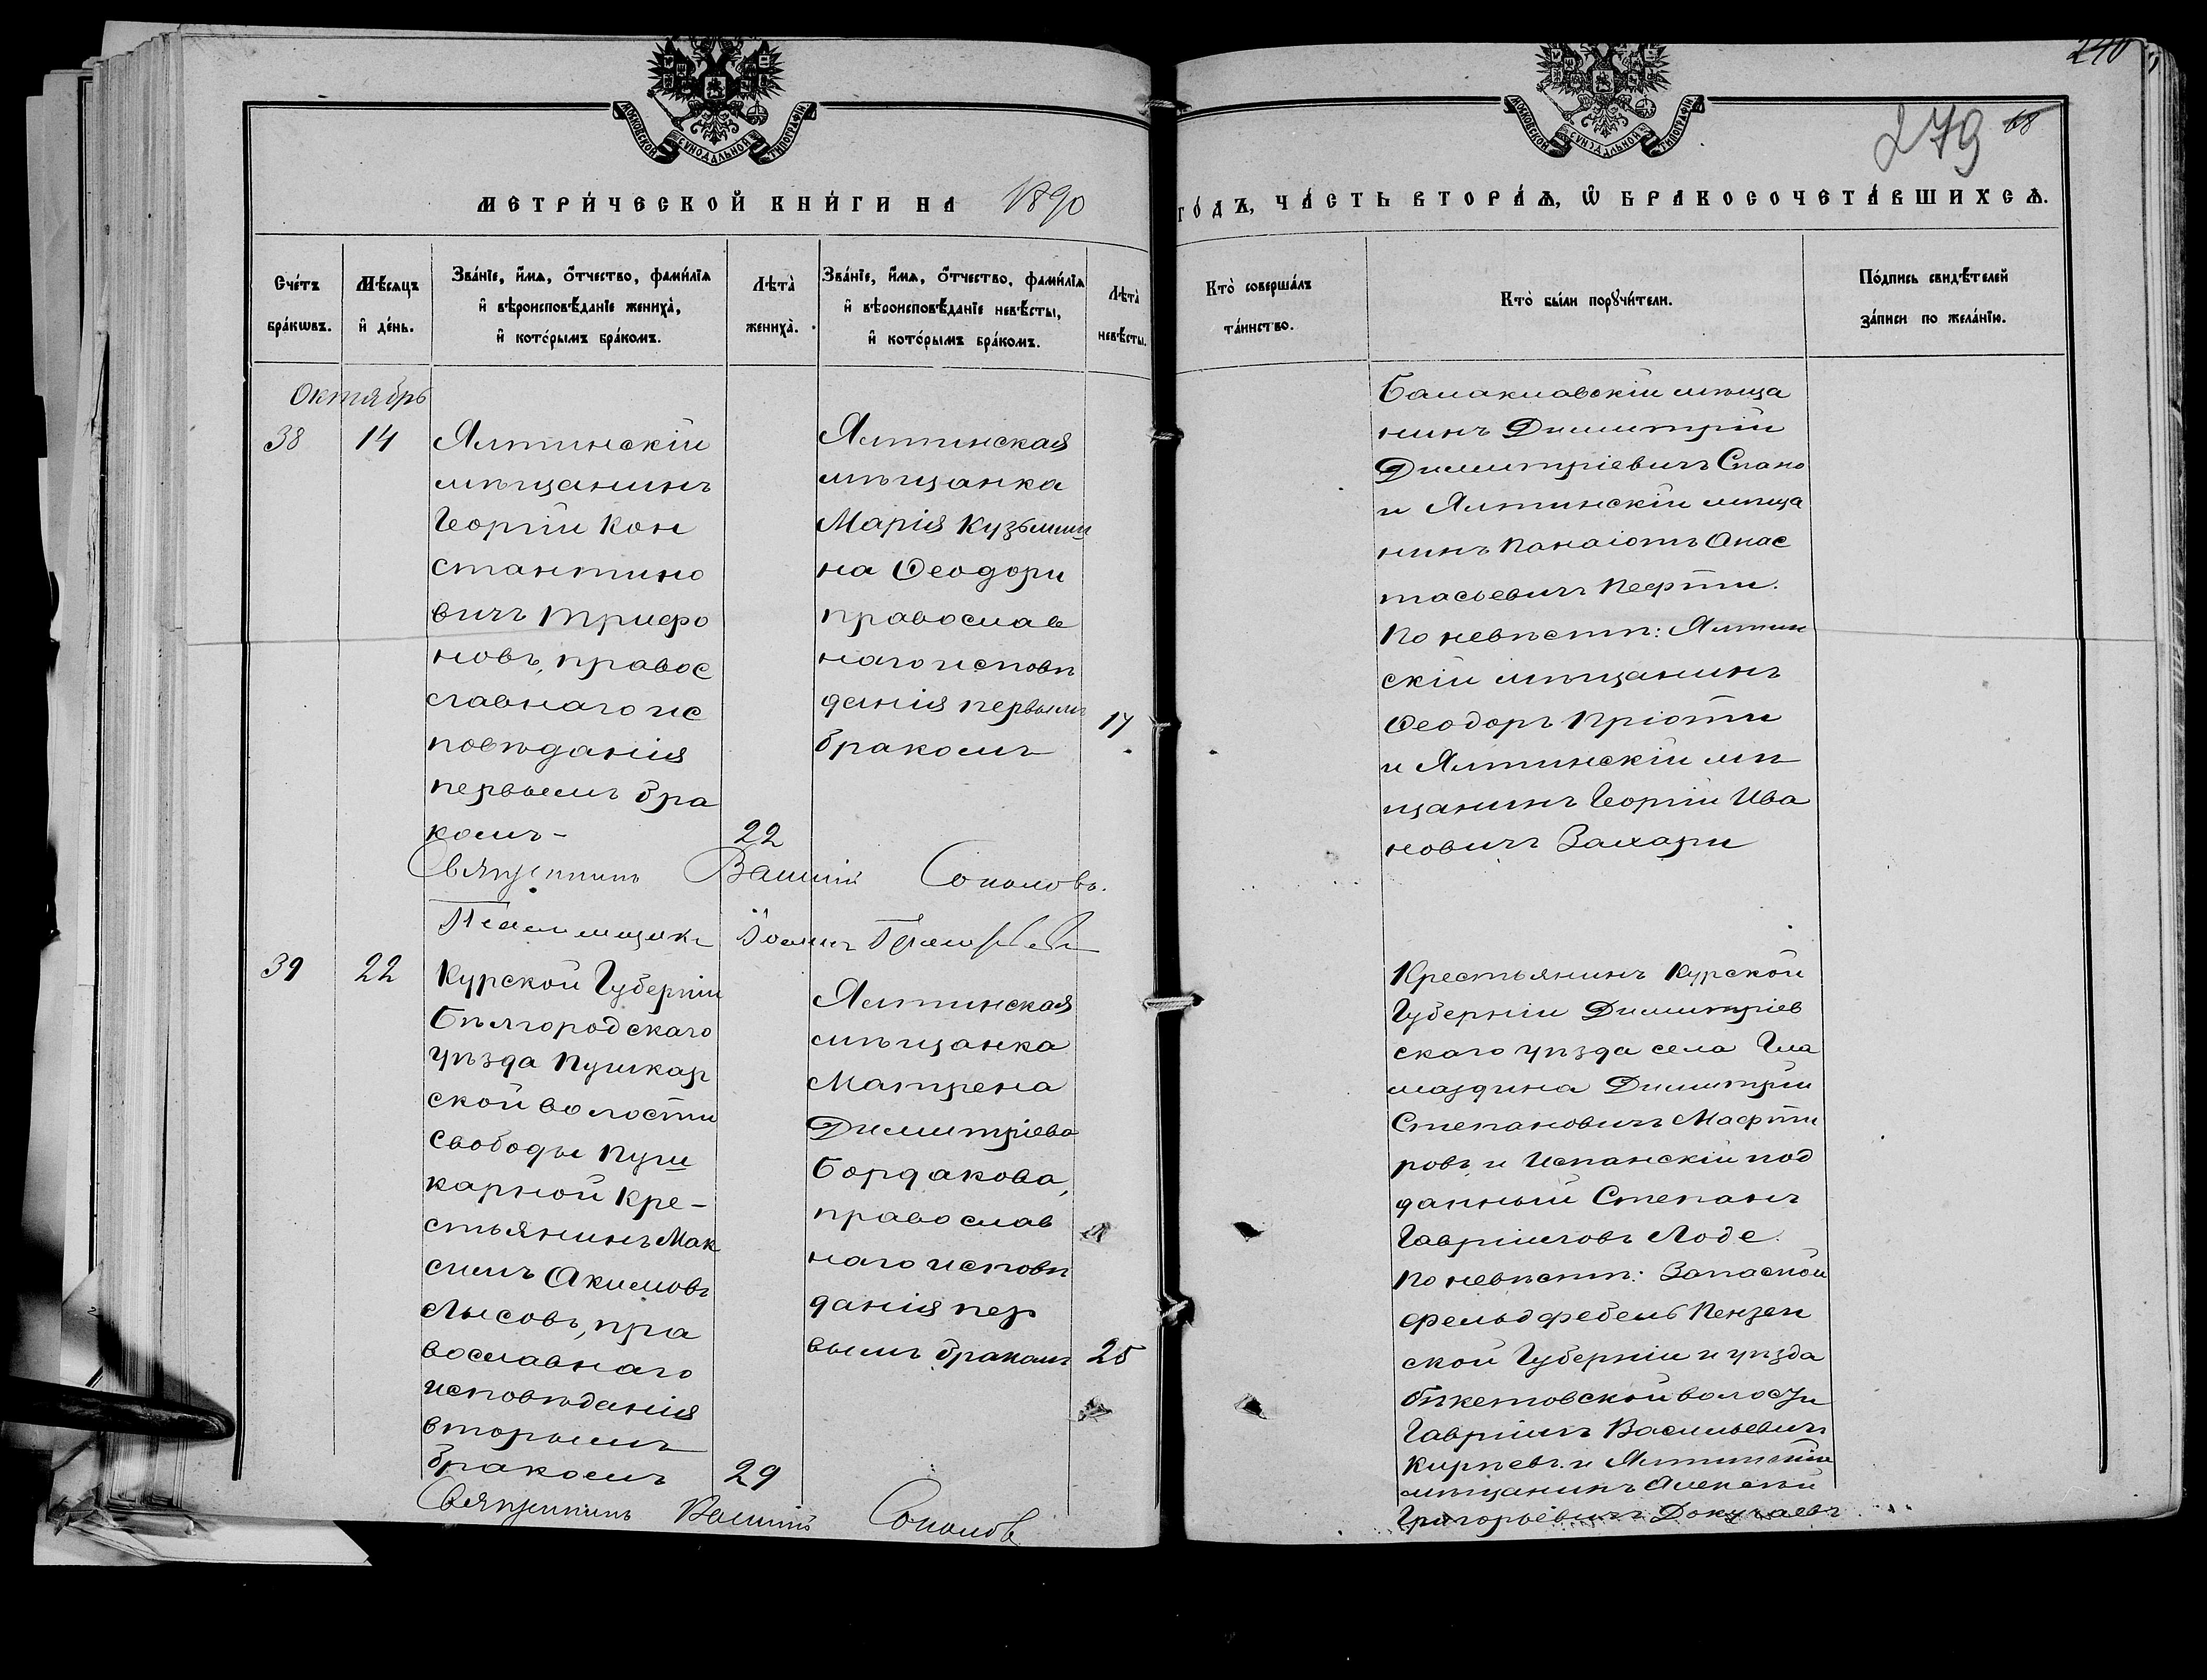 МОСКОВСКОЙ СѴНОДАЛЬНОЙ ТИПОГРАФІИ
МОСКОВСКОЙ СѴНОДАЛЬНОЙ ТИПОГРАФІИ
240
279 68
МЕТРИ́ЧЕСКОЙ КНИ́ГИ НА 1890
ГО́ДЪ, ЧА́СТЬ ВТОРА́Ѧ, Ѽ БРАКОСОЧЕТА́ВШИХСѦ.
Сче́тъ
бра́кѡвъ.
Мѣ́сяцъ
и҆ де́нь.
Зва́нїе, и҆́мѧ, ѻ҆́тчество, фами́лїѧ
и҆ вѣроисповѣ́данїе жениха̀,
и҆ кото́рымъ бра́комъ.
Лѣта̀
жениха̀.
Зва́нїе, и҆́мѧ, ѻ҆́тчество, фами́лїѧ
и҆ вѣроисповѣ́данїе невѣ́сты,
и҆ кото́рымъ бра́комъ.
Лѣта̀
невѣ́сты.
Кто̀ соверша́лъ
та́инство.
Кто̀ бы́ли порꙋчи́тели.
По́дпись свидѣ́телей
за́писи по жела́нїю.
Октябрь
38
14
Ялтинскій
мѣщанинъ
Георгій Кон
стантино
вичъ Трифо
новъ, правос
славнаго ис
повѣданія
первымъ бра
комъ-
22
Ялтинская
мѣщанка
Марія Кузьми
на Ѳеодори
православ
наго исповѣ
данія первымъ
бракомъ
17
Балаклавскій мѣща
нинъ Димитрій
Димитріевичъ Спано
и Ялтинскій мѣща
нинъ Панаіотъ Анас
тасьевичъ Пефти.
По невѣстѣ: Ялтин
скій мѣщанинъ
Ѳеодоръ Пріоти
и Ялтинскій мѣ
щанинъ Георгій Ива
новичъ Захари
Священникъ Василій Соколовъ.
Псаломщикъ Іоаннъ
39
22
Курской Губерніи
Бѣлгородскаго
уѣзда Пушкар
ской волости
Свободы Пуш
карной Кре-
стьянинъ Мак
симъ Акимовъ
Лысовъ, пра
вославнаго
исповѣданія
вторымъ
бракомъ
29
Ялтинская
мѣщанка
Матрена
Димитріева
Бордакова,
православ
наго исповѣ
данія пер
вымъ бракомъ
25
Крестьянинъ Курской
Губерніи Димитріев
скаго уѣзда села Гла
маздина Димитрій
Степановичъ Мафти
ровъ и Испанскій под
данный Степанъ
Гавріиловъ Лоде.
По невѣстѣ: Запасной
фельдфебель Пензен
ской Губерніи и уѣзда
Бѣкетовской волости
Гавріилъ Васильевичъ
Кирѣевъ и Ялтинскій
мѣщанинъ Алексѣй
Григорьевичъ Докучаевъ
Священникъ Василій Соколовъ